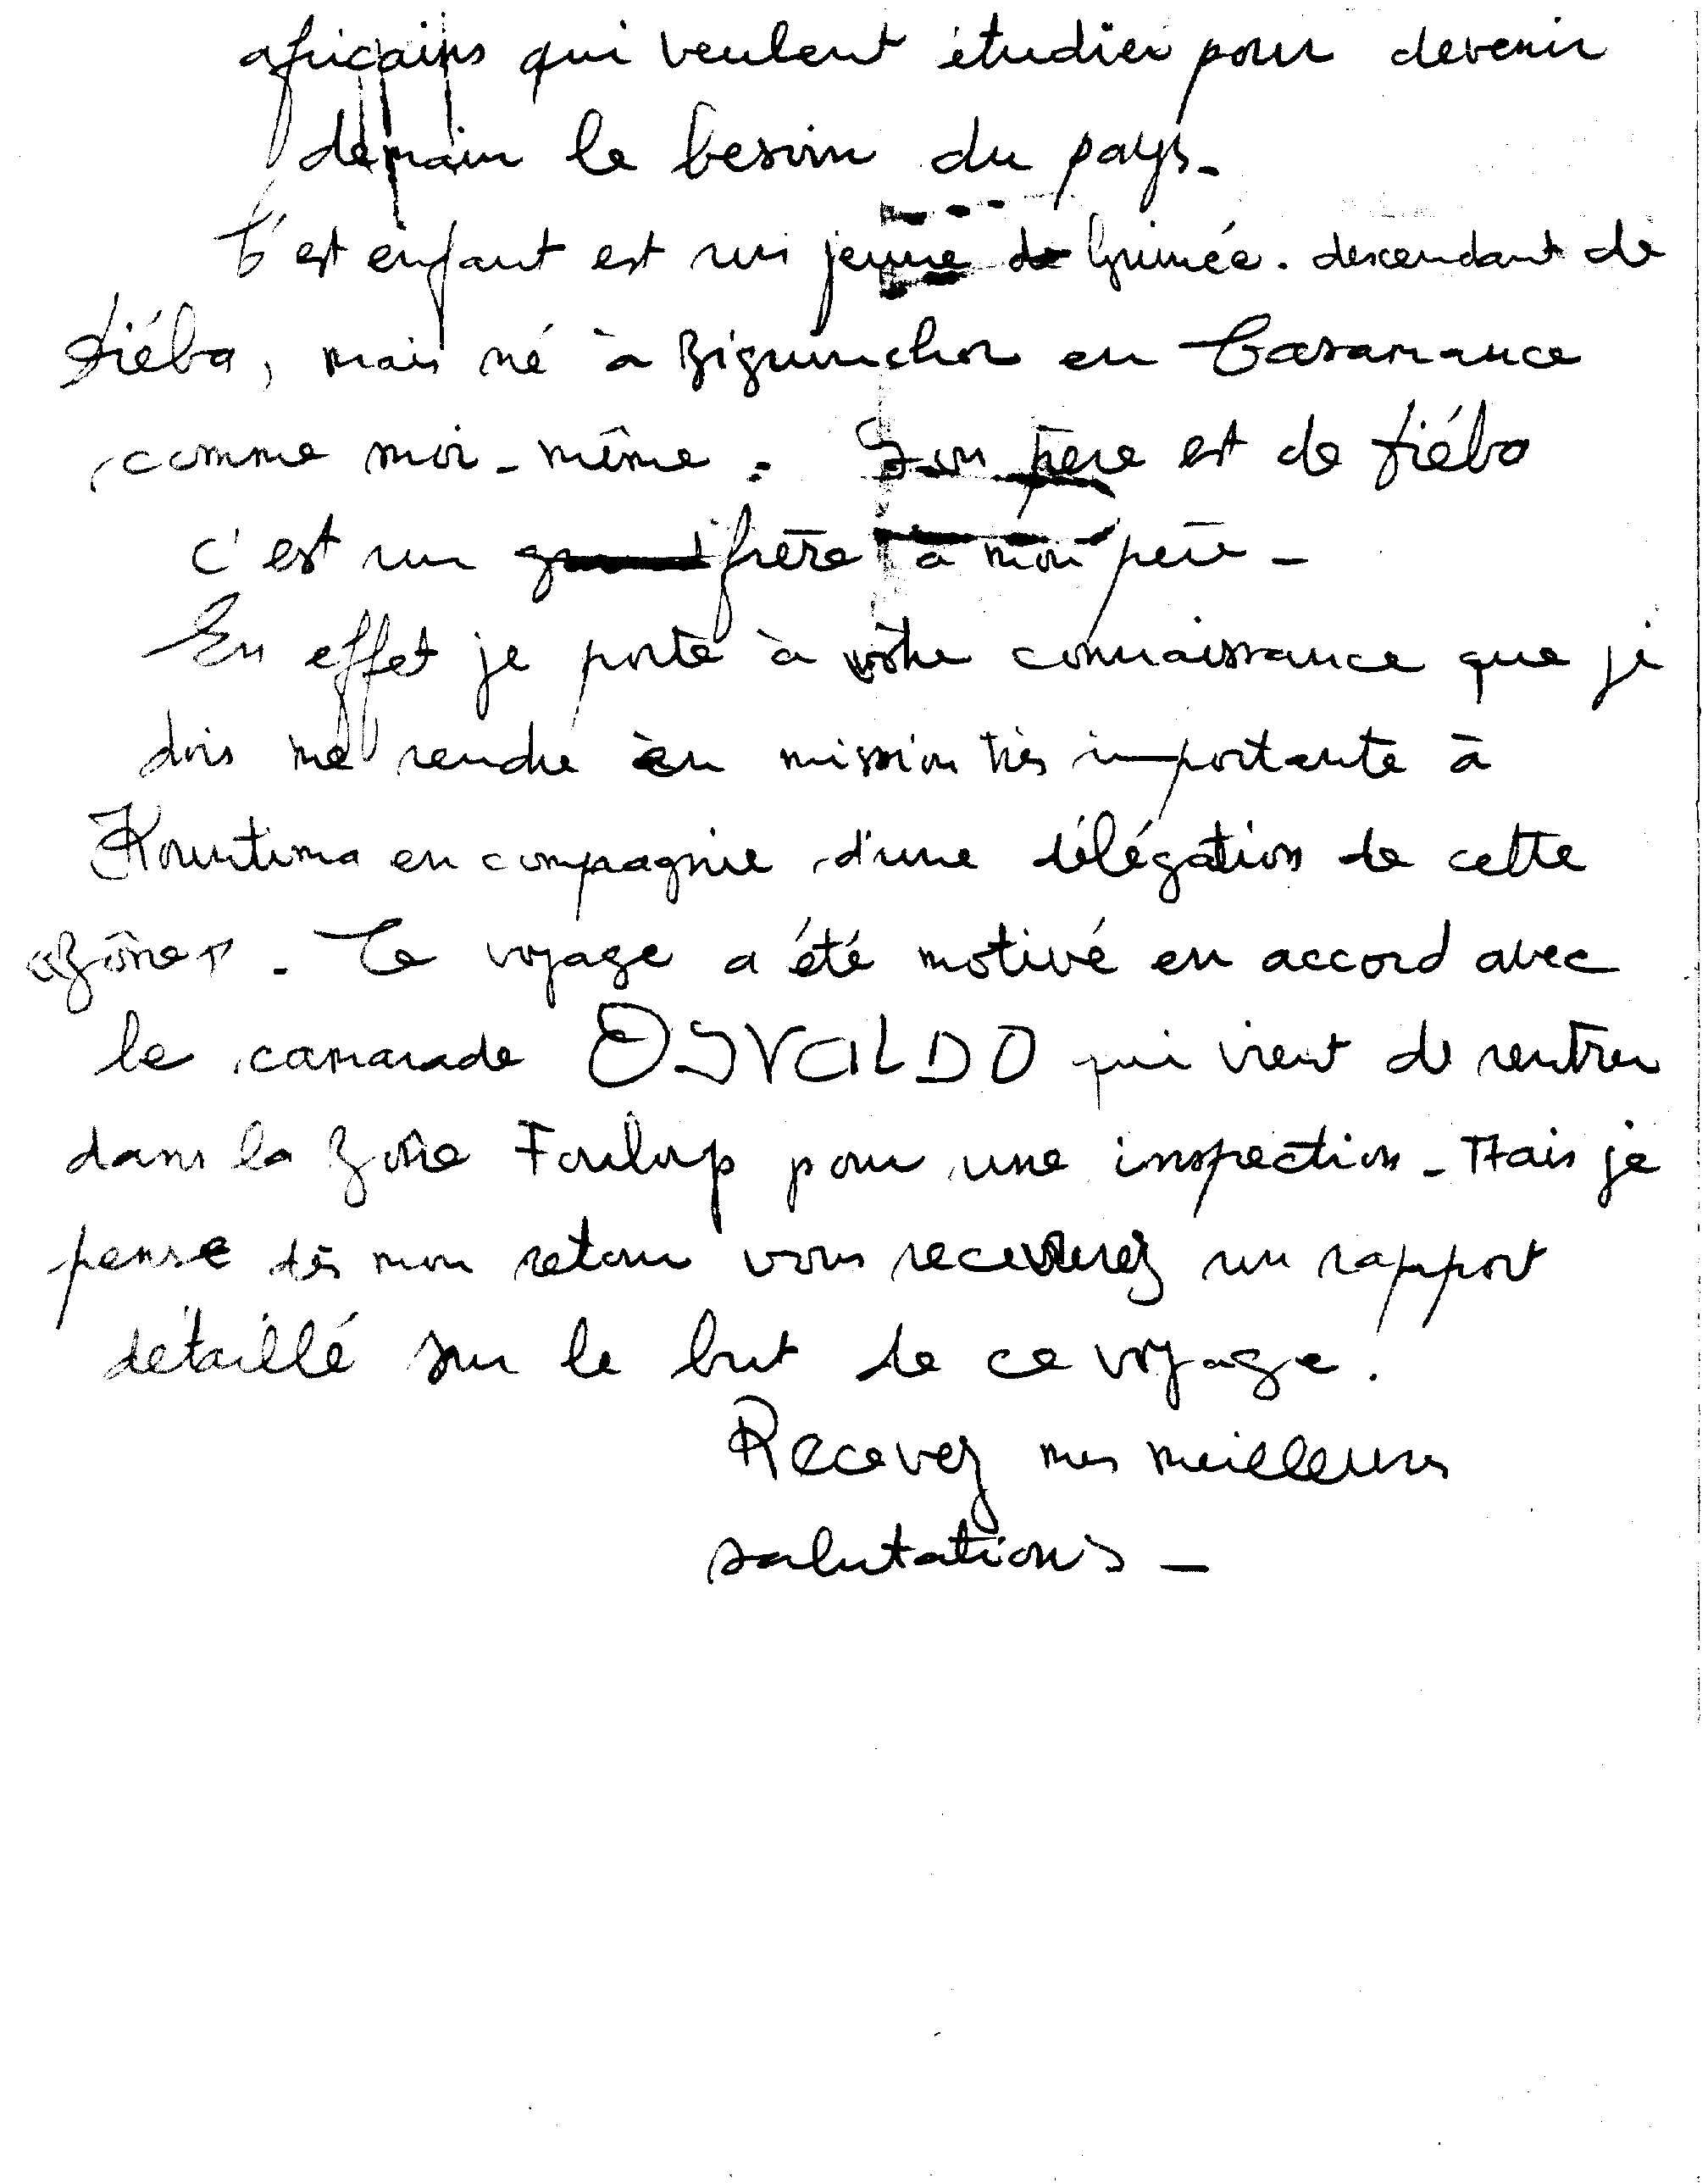 africains qui veulent étudier pour devenir
demain le besoin du pays-
C'est enfant est un jeune de Guinée. descendant de
tiéba, mais né à Ziguinchor en Casamance
comme moi-même. Son père est de tiéba
c'est un grand frère à mon père-
En effet je porte à vôtre connaissance que je
dois me rendre en mission très importante à
Kountima en compagnie d'une délégation de cette
"Zône". Ce voyage a été motivé en accord avec
le camarade OSVALDO qui vient de rentrer
dans la Zône Fouloup pour une inspection- Mais je
pense dès mon retour vous recevrez un rapport
détaillé sur le but de ce voyage.
Recevez mes meilleures
salutations-